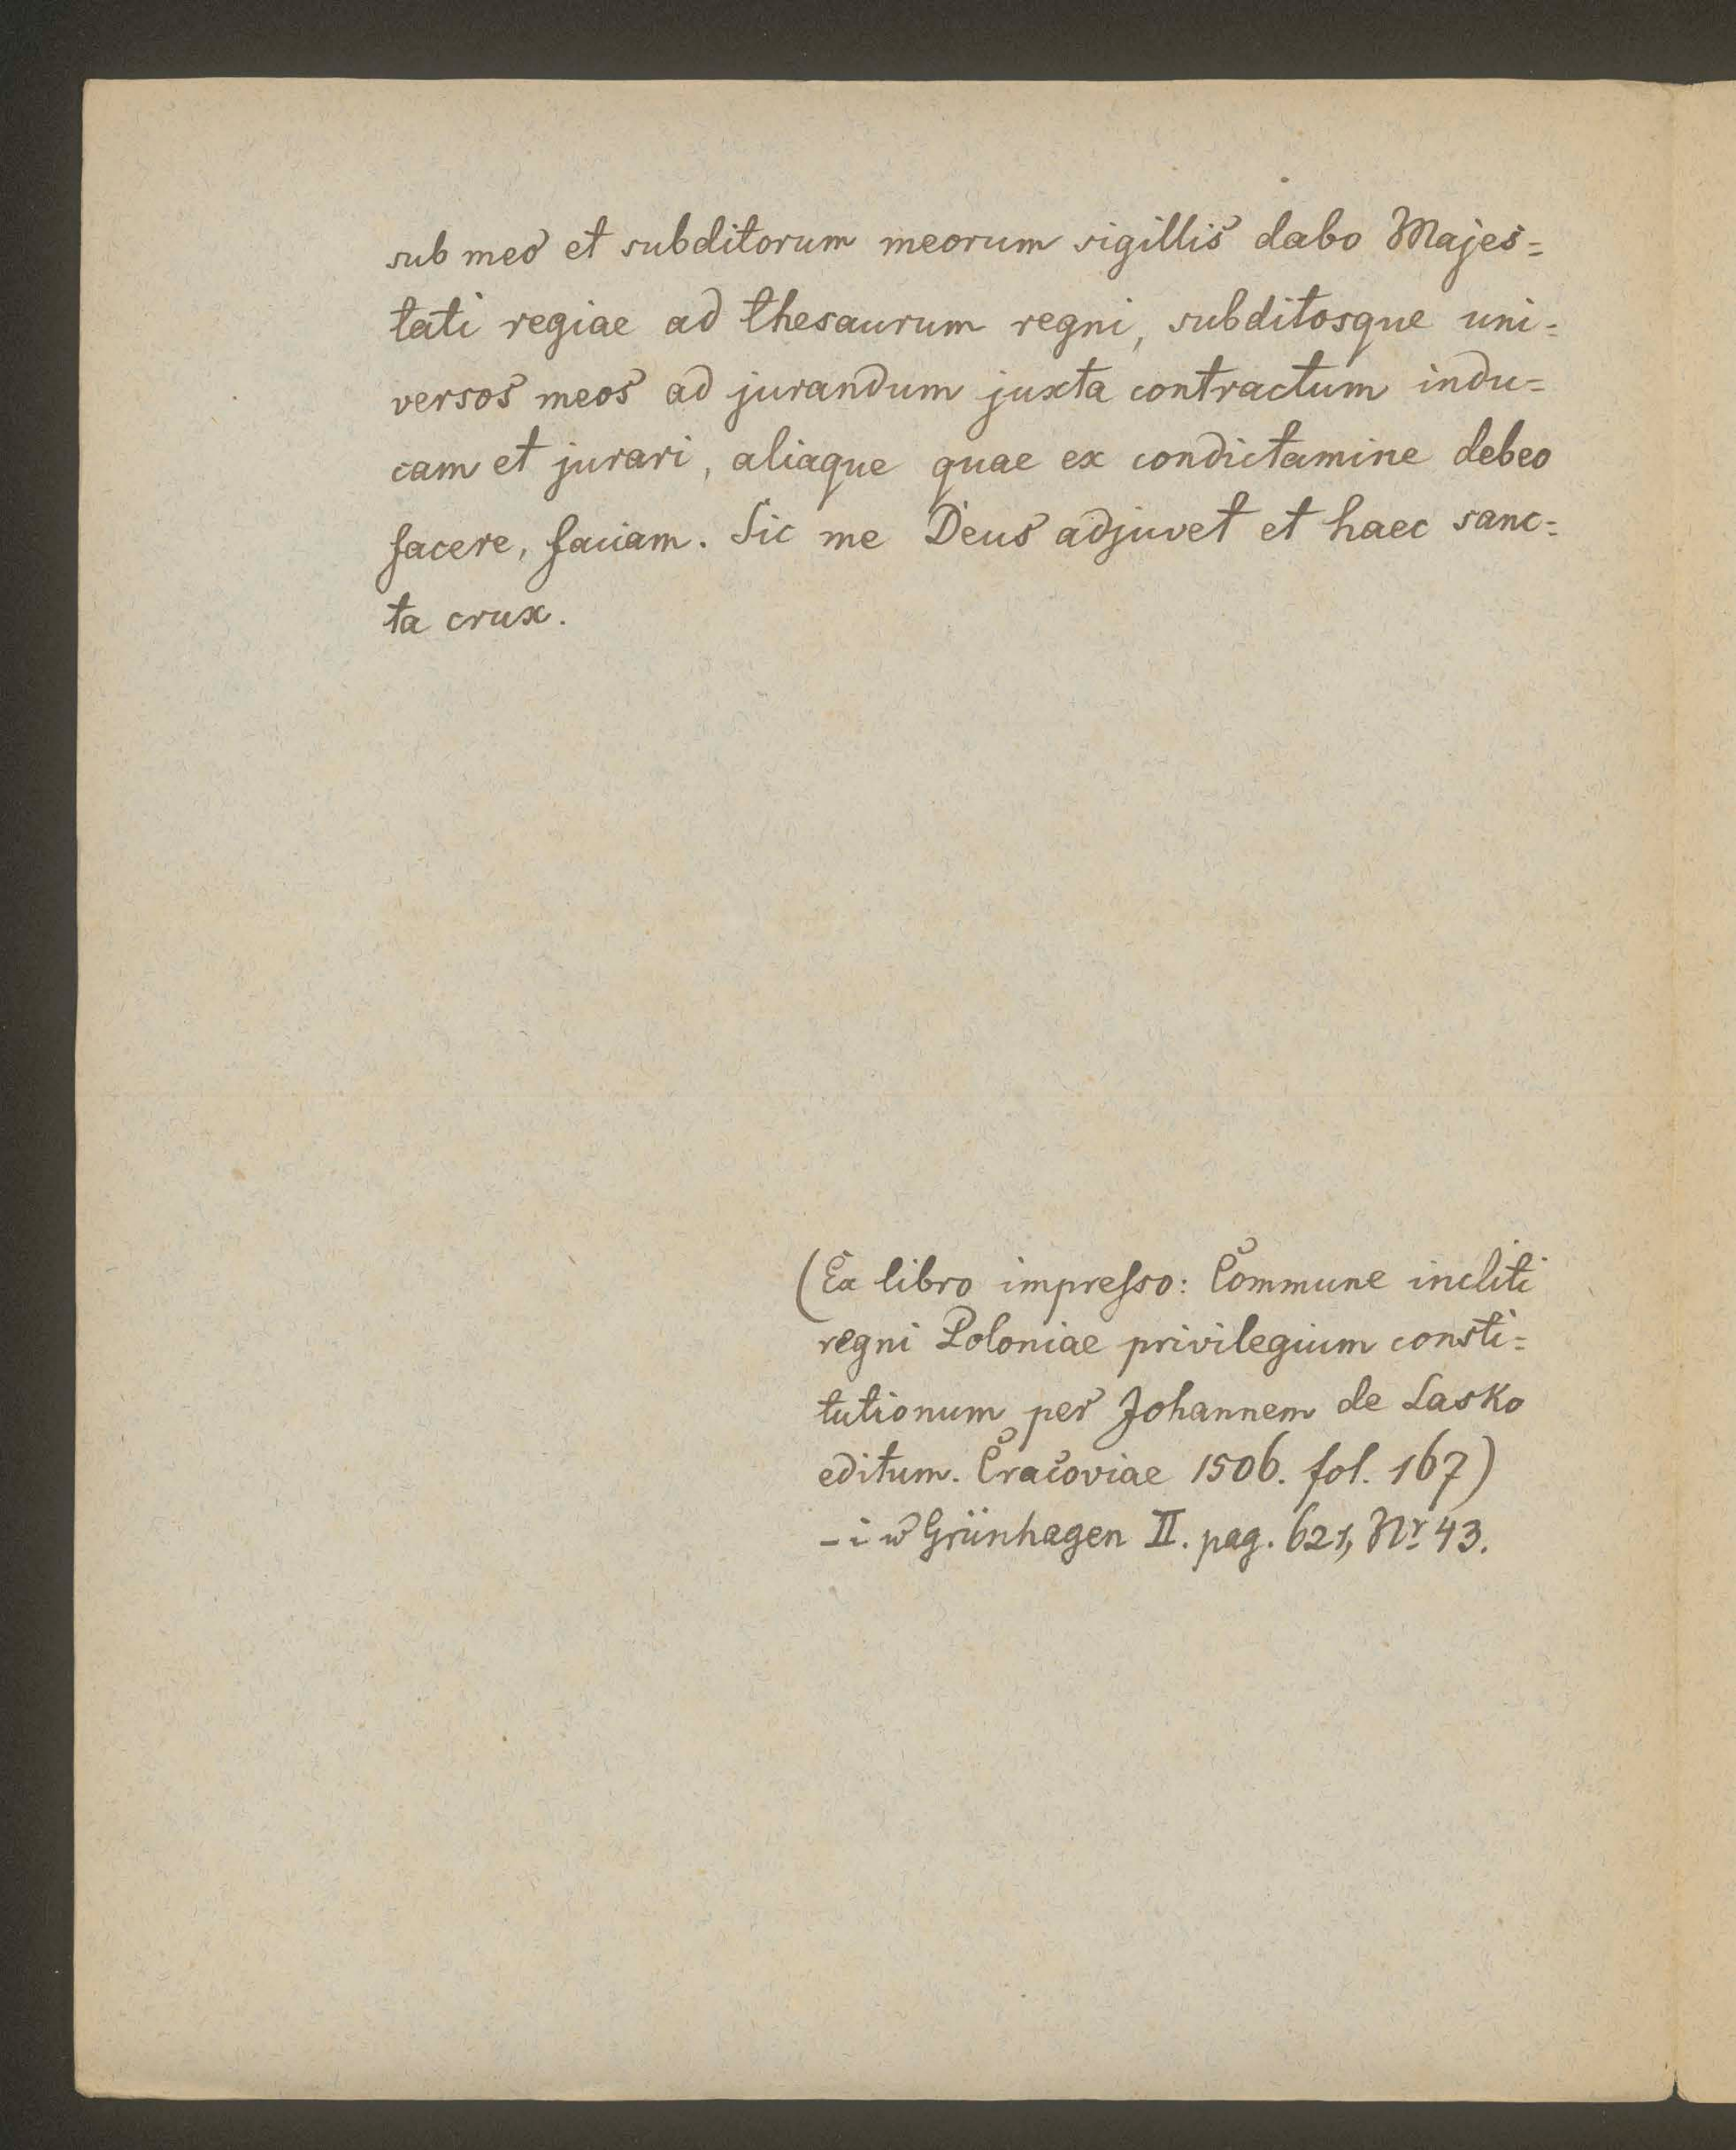 sub meo et subditorum meorum sigillis dabo Majes=
tati regiae ad thesaurum regni, subditosque uni=
versos meos ad jurandum juxta contractum indu=
cam et jurari, aliaque quae ex condictamine debeo
facere, faciam. Sic me Deus adjuvet et haec sanc=
ta crux.
(Ex libro impresso: Commune incliti
regni Poloniae privilegium consti=
tutionum per Johannem de Lasko
editum. Cracoviae 1506. fol. 167)
– i w Grünhagen II. pag. 621, Nr 43.